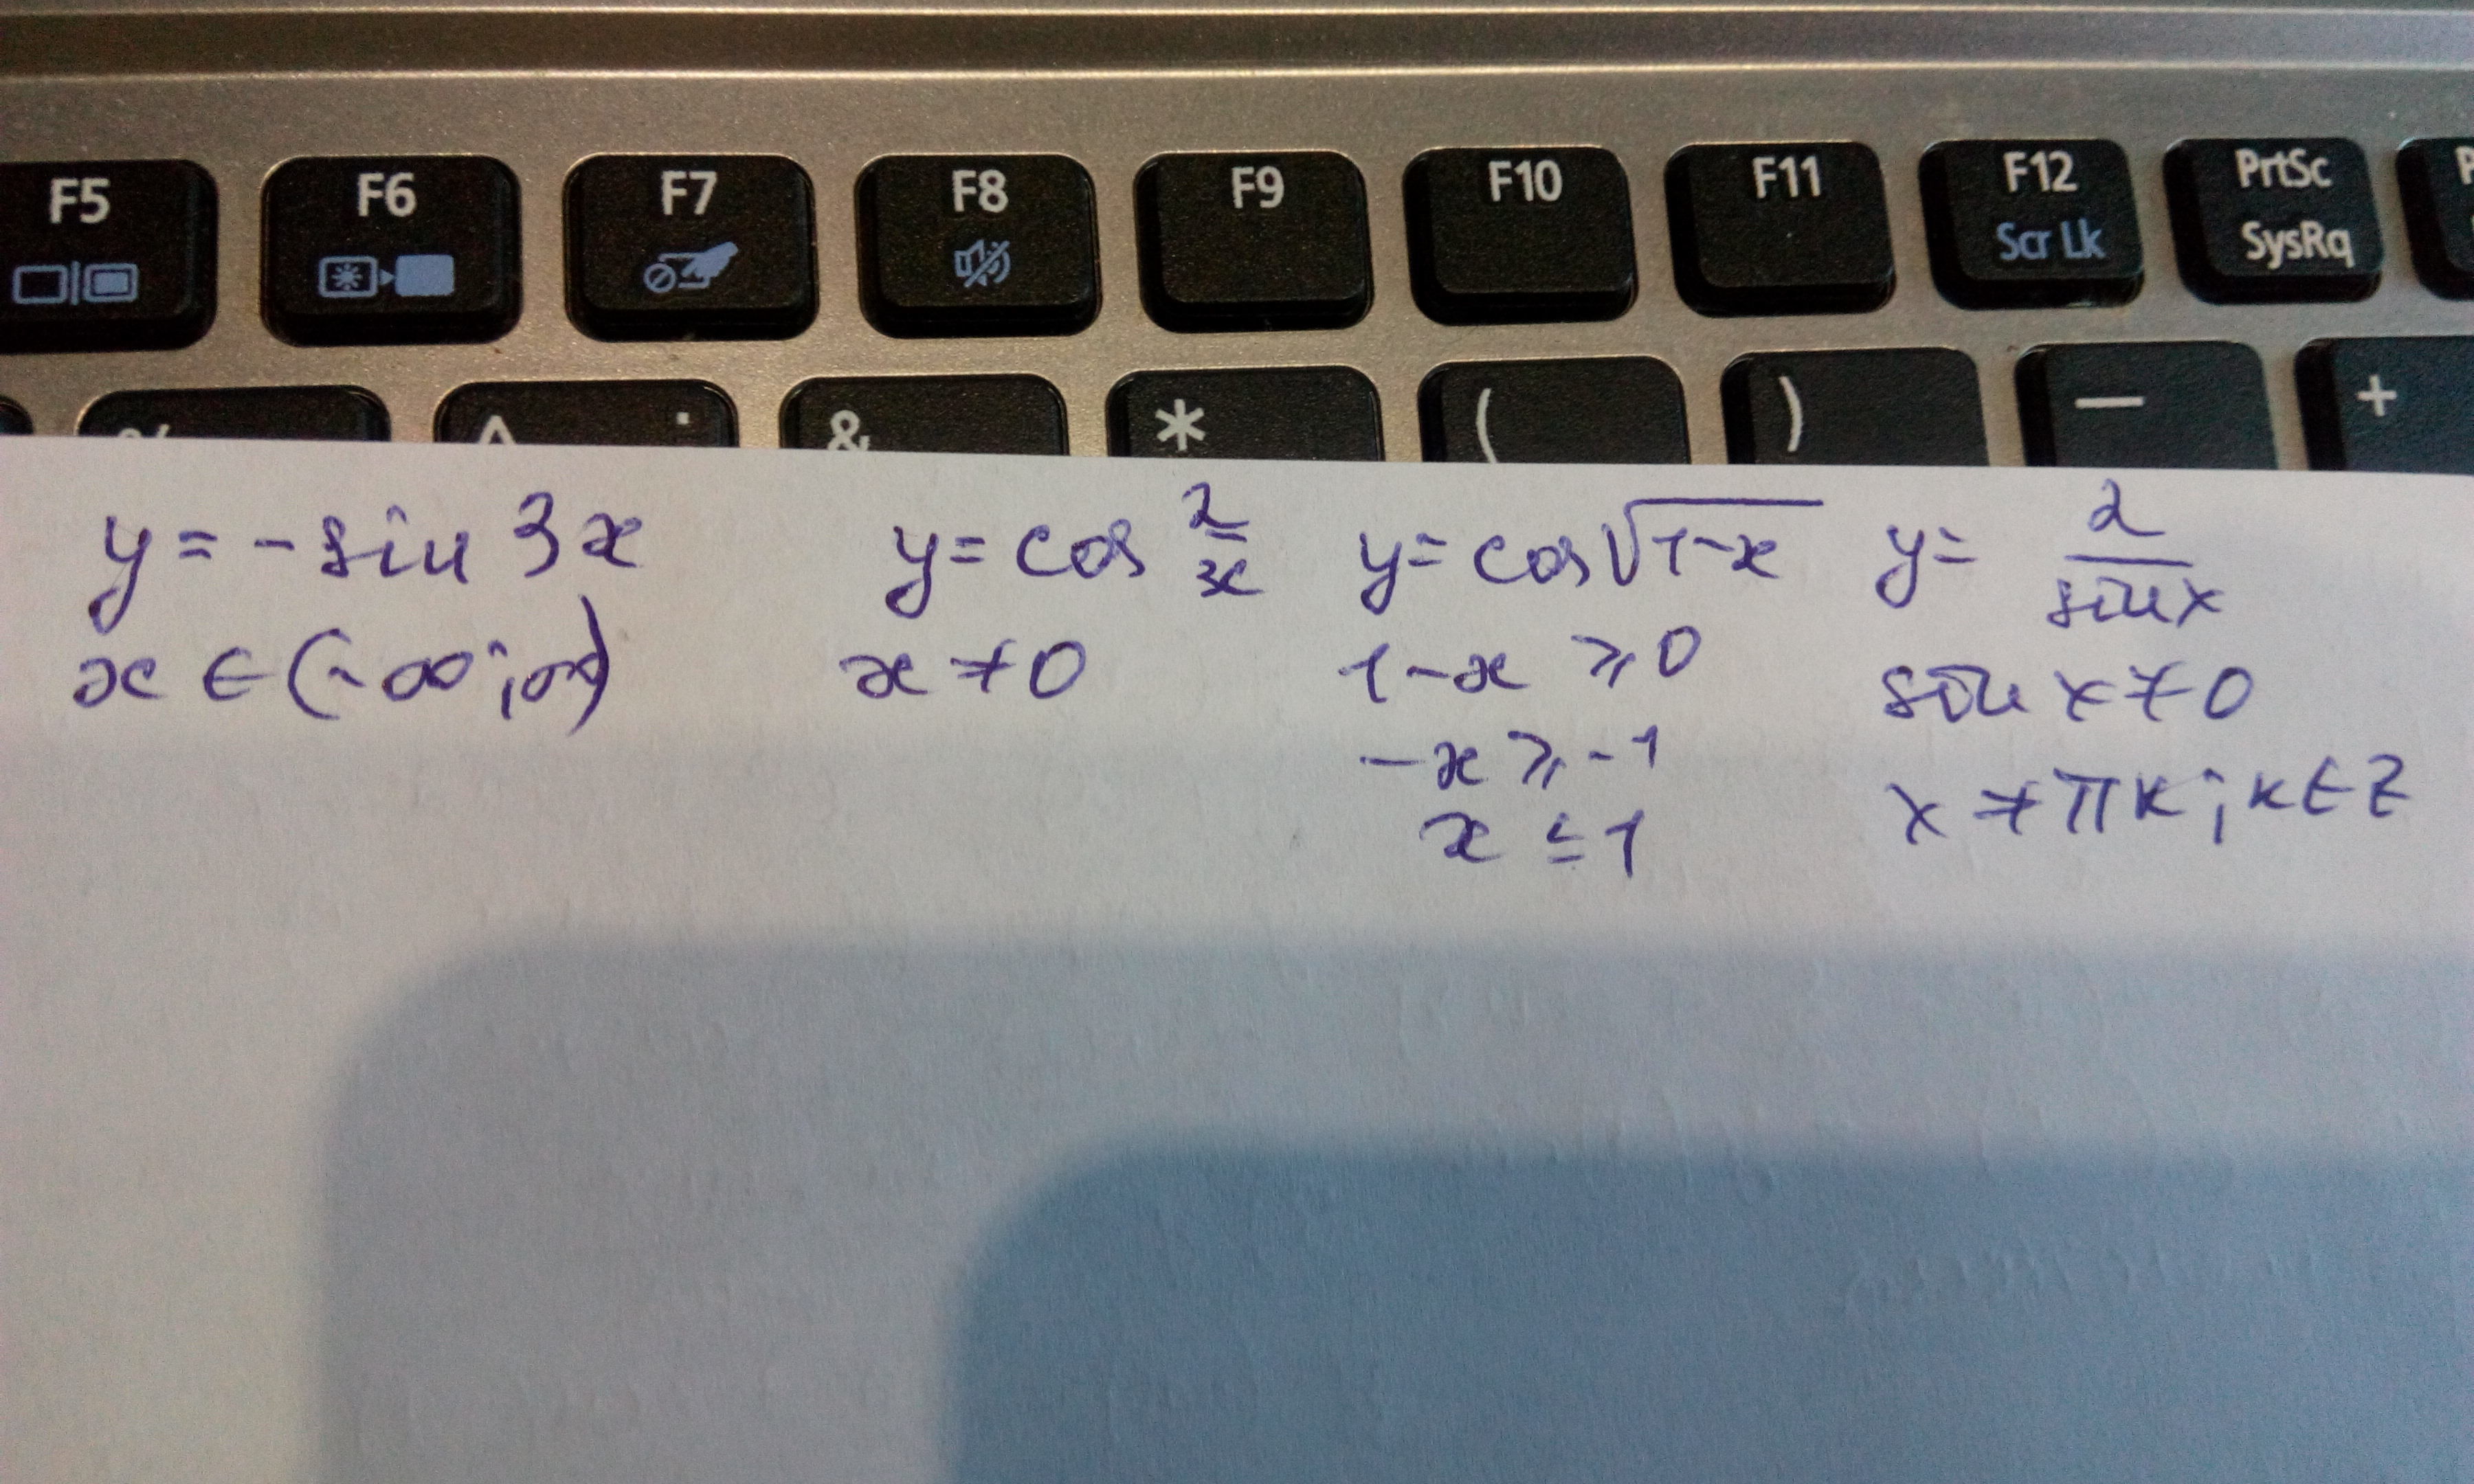 F5 F6 F7 F8 F9 F10 F11 F12 PrtSc
Scr Lk SysRq
& * ( ) — +
y = -sin 3x
x ∈ (-∞; ∞)
y = cos 2/3x
x ≠ 0
y = cos√(1-x)
1-x ⩾ 0
-x ⩾ -1
x ≤ 1
y = 2/sin x
sin x ≠ 0
x ≠ πk; k ∈ Z